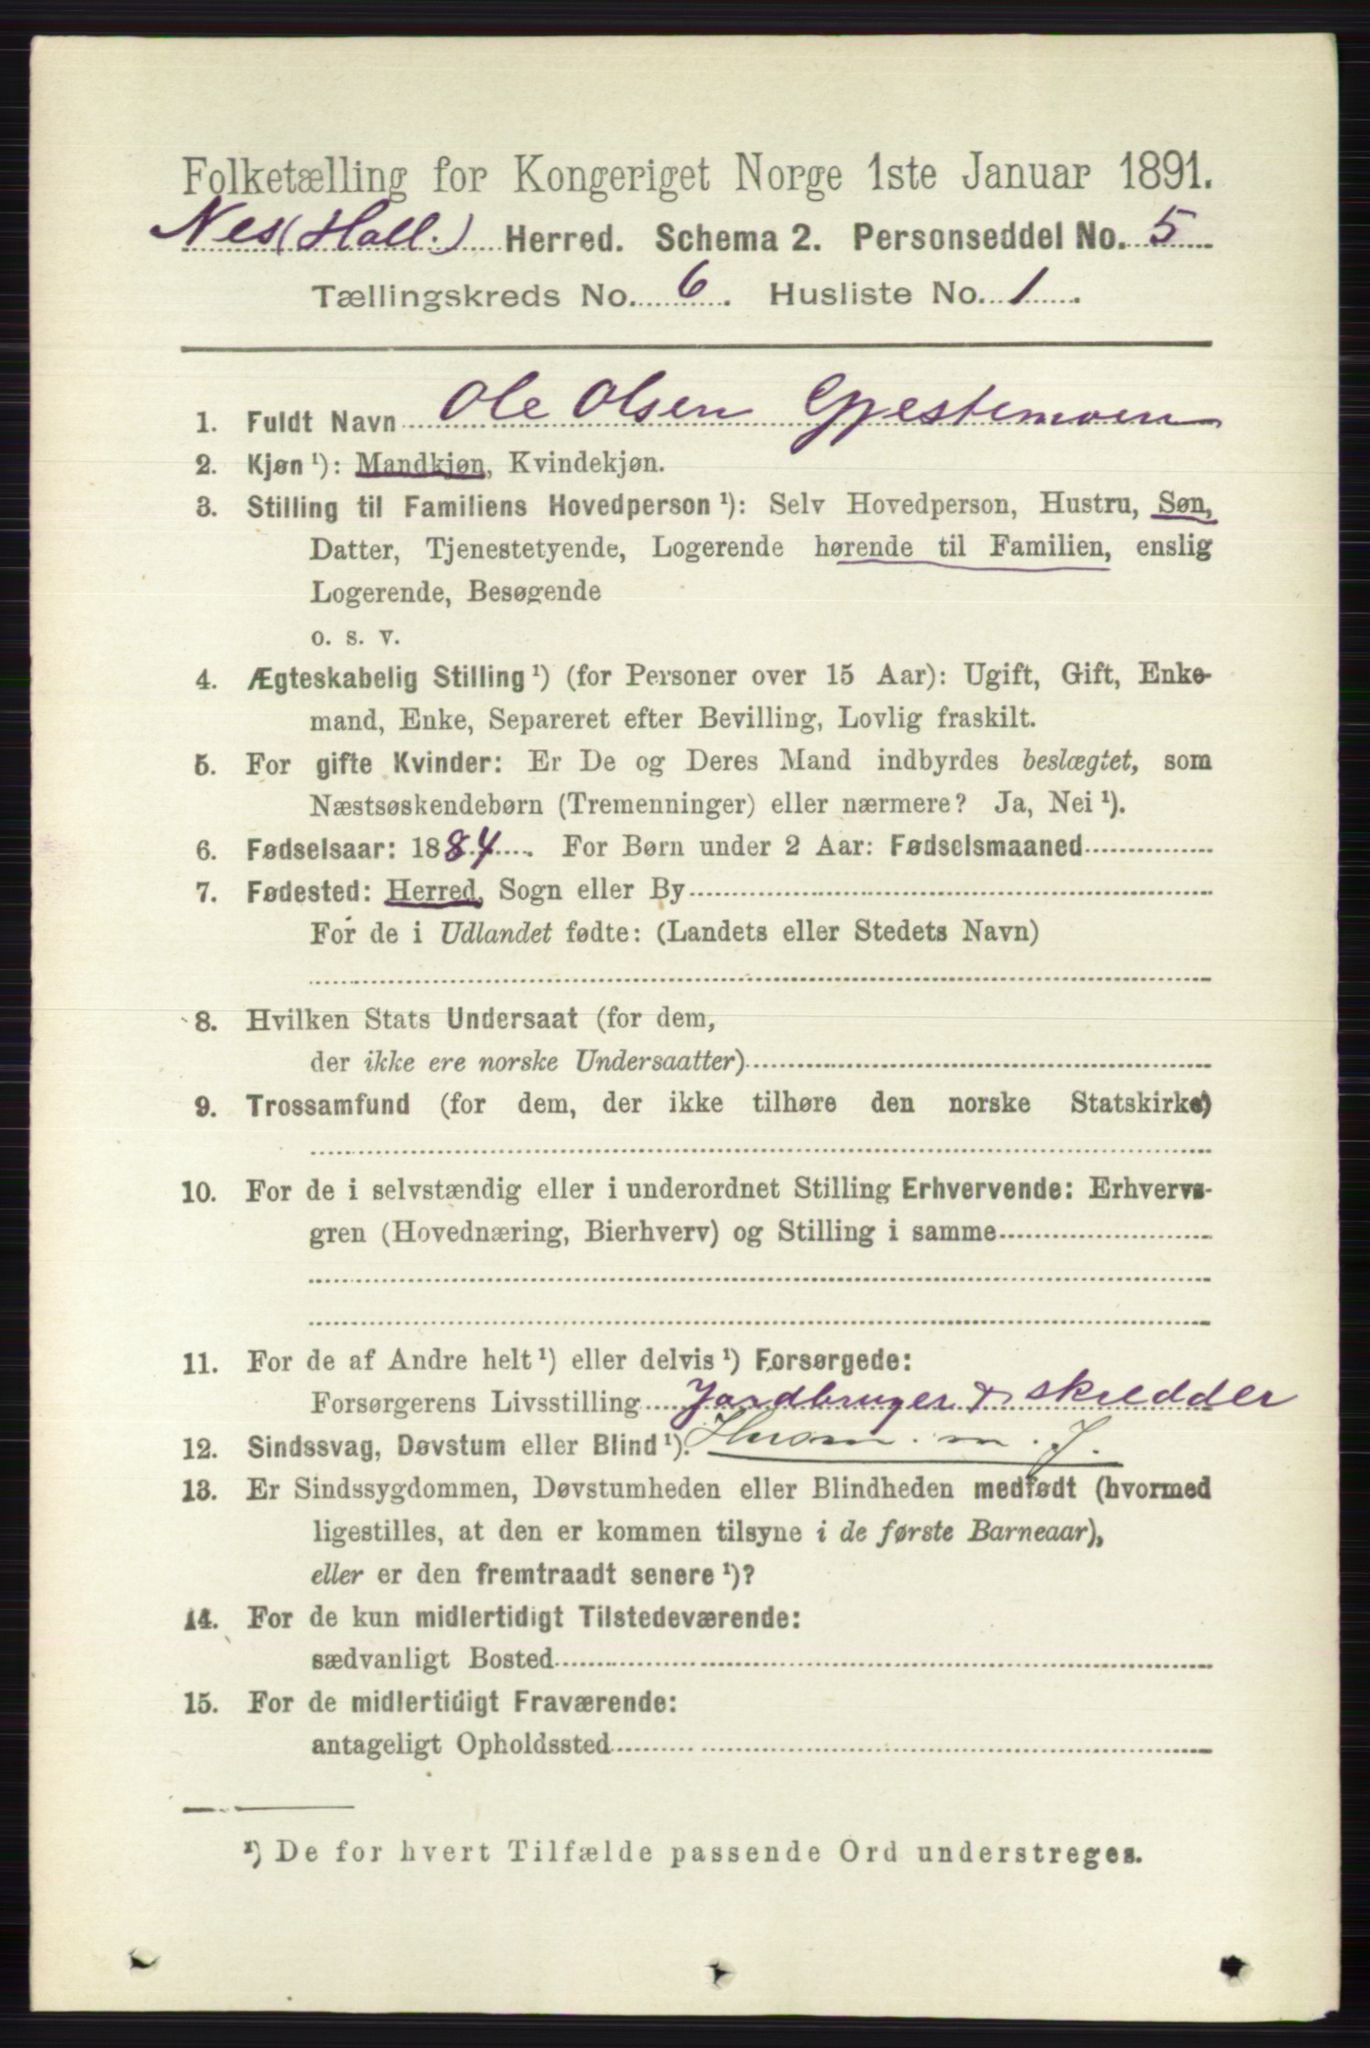 Folketælling for Kongeriget Norge 1ste Januar 1891.
Nes (Hall.) Herred. Schema 2. Personseddel No. 5
Tællingskreds No. 6. Husliste No. 1.
1. Fuldt Navn Ole Olsen Gjestemoen
2. Kjøn ¹): Mandkjøn, Kvindekjøn.
3. Stilling til Familiens Hovedperson ¹): Selv Hovedperson, Hustru, Søn,
Datter, Tjenestetyende, Logerende hørende til Familien, enslig
Logerende, Besøgende
o. s. v.
4. Ægteskabelig Stilling ¹) (for Personer over 15 Aar): Ugift, Gift, Enke-
mand, Enke, Separeret efter Bevilling, Lovlig fraskilt.
5. For gifte Kvinder: Er De og Deres Mand indbyrdes beslægtet, som
Næstsøskendebørn (Tremenninger) eller nærmere? Ja, Nei ¹).
6. Fødselsaar: 1884. For Børn under 2 Aar: Fødselsmaaned
7. Fødested: Herred, Sogn eller By
For de i Udlandet fødte: (Landets eller Stedets Navn)
8. Hvilken Stats Undersaat (for dem,
der ikke ere norske Undersaatter)
9. Trossamfund (for dem, der ikke tilhøre den norske Statskirke)
10. For de i selvstændig eller i underordnet Stilling Erhvervende: Erhvervs-
gren (Hovednæring, Bierhverv) og Stilling i samme
11. For de af Andre helt ¹) eller delvis ¹) Forsørgede:
Forsørgerens Livsstilling Jordbruger & skredder
12. Sindssvag, Døvstum eller Blind ¹). Husm. m. J.
13. Er Sindssygdommen, Døvstumheden eller Blindheden medfødt (hvormed
ligestilles, at den er kommen tilsyne i de første Barneaar),
eller er den fremtraadt senere ¹)?
14. For de kun midlertidigt Tilstedeværende:
sædvanligt Bosted
15. For de midlertidigt Fraværende:
antageligt Opholdssted
¹) De for hvert Tilfælde passende Ord understreges.